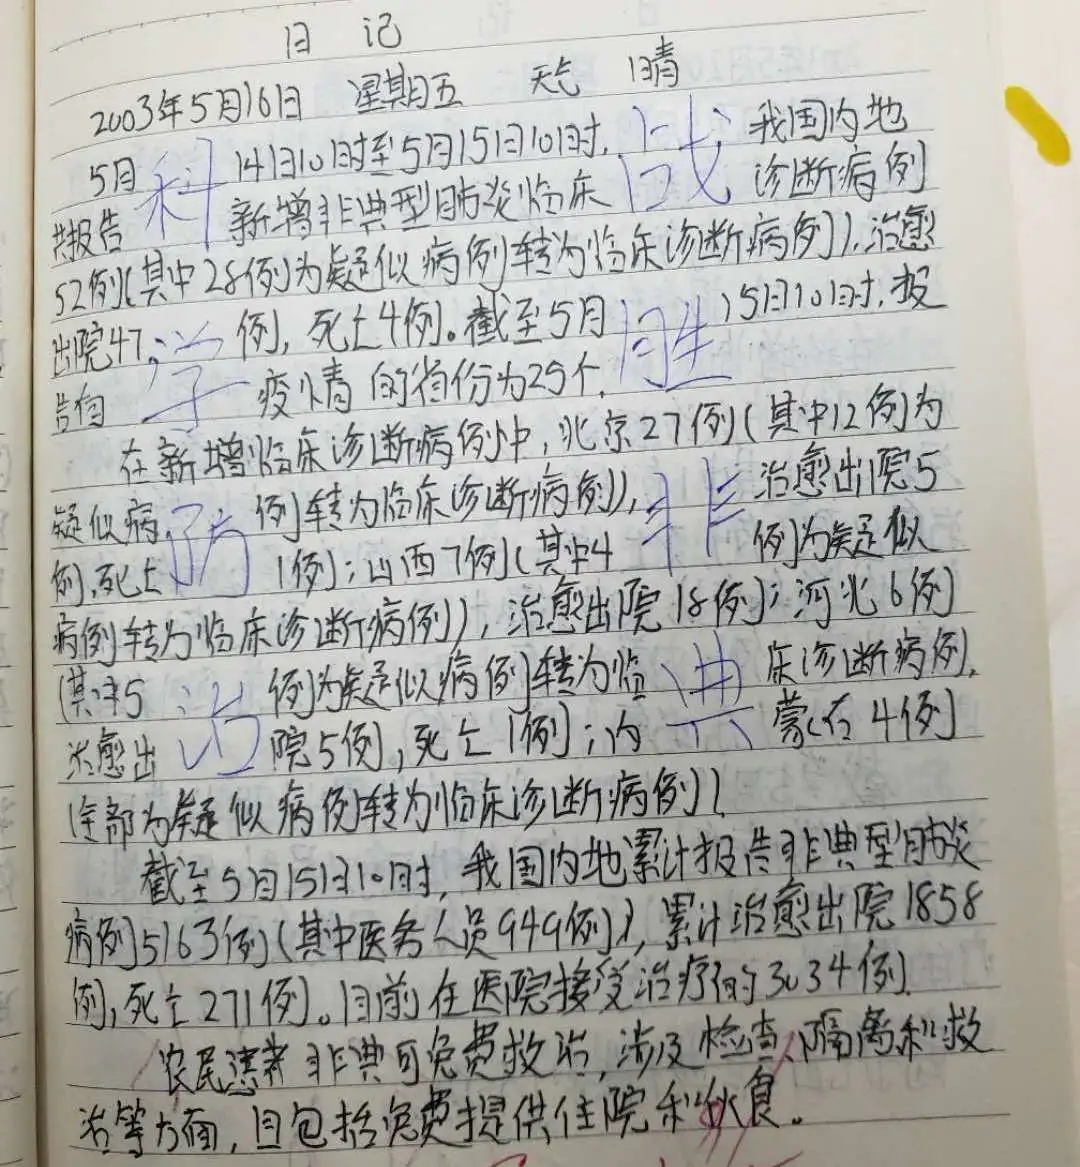 日 记
2003年5月16日 星期五 天气 晴
5月14日10时至5月15日10时,我国内地
共报告新增非典型肺炎临床诊断病例
52例(其中28例为疑似病例转为临床诊断病例),治愈
出院47例,死亡4例。截至5月15日10时,报
告有疫情的省份为25个.
在新增临床诊断病例中,北京27例(其中12例为
疑似病例转为临床诊断病例),治愈出院5
例,死亡1例;山西7例(其中4例为疑似
病例转为临床诊断病例),治愈出院18例;河北6例
(其中5例为疑似病例转为临床诊断病例,
治愈出院5例,死亡1例;内蒙古4例
(全部为疑似病例转为临床诊断病例)
截至5月15日10时,我国内地累计报告非典型肺炎
病例5163例(其中医务人员949例),累计治愈出院1858
例,死亡271例。目前在医院接受治疗的3034例.
农民患者非典可免费救治,涉及检查、隔离和救
治等方面,且包括免费提供住院和伙食。
科学防治
战胜非典